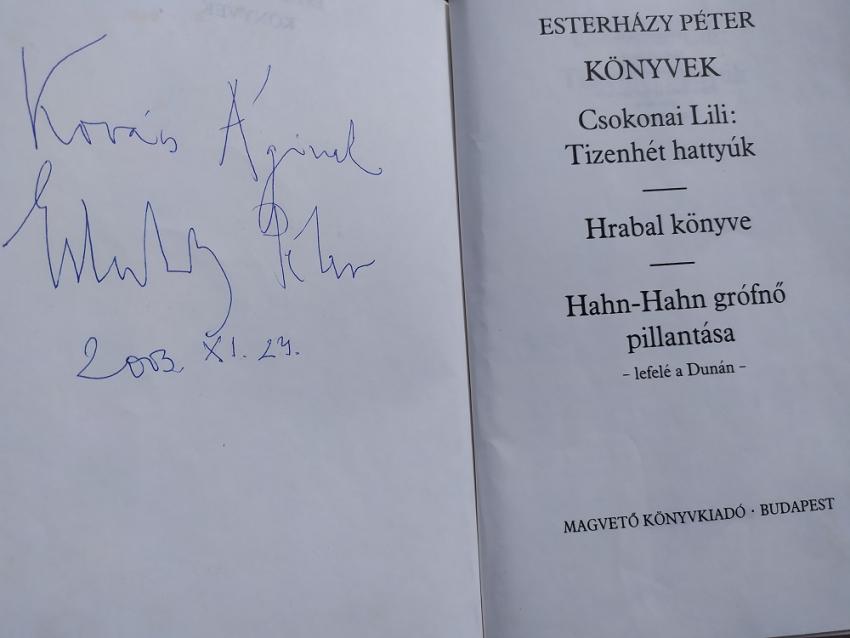 Kovács Áginak
Esterházy Péter
2003. XI. 27.
ESTERHÁZY PÉTER
KÖNYVEK
Csokonai Lili:
Tizenhét hattyúk
Hrabal könyve
Hahn-Hahn grófnő
pillantása
– lefelé a Dunán –
MAGVETŐ KÖNYVKIADÓ · BUDAPEST